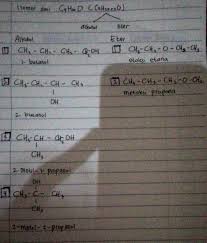 Isomer dari C₄H₁₀O
alkohol eter
Alkohol Eter
1 CH₃ - CH₂ - CH₂ - CH₂OH 1 CH₃ - CH₂ - O - CH₂ - CH₃
1-butanol etoksi etana
2 CH₃ - CH₂ - CH - CH₃ 2 CH₃ - CH₂ - CH₂ - O - CH₃
OH metoksi propana
2-butanol
3 CH₃ - CH - CH₂OH
CH₃
2-metil-1-propanol
OH
4 CH₃ - C - CH₃
CH₃
2-metil-2-propanol